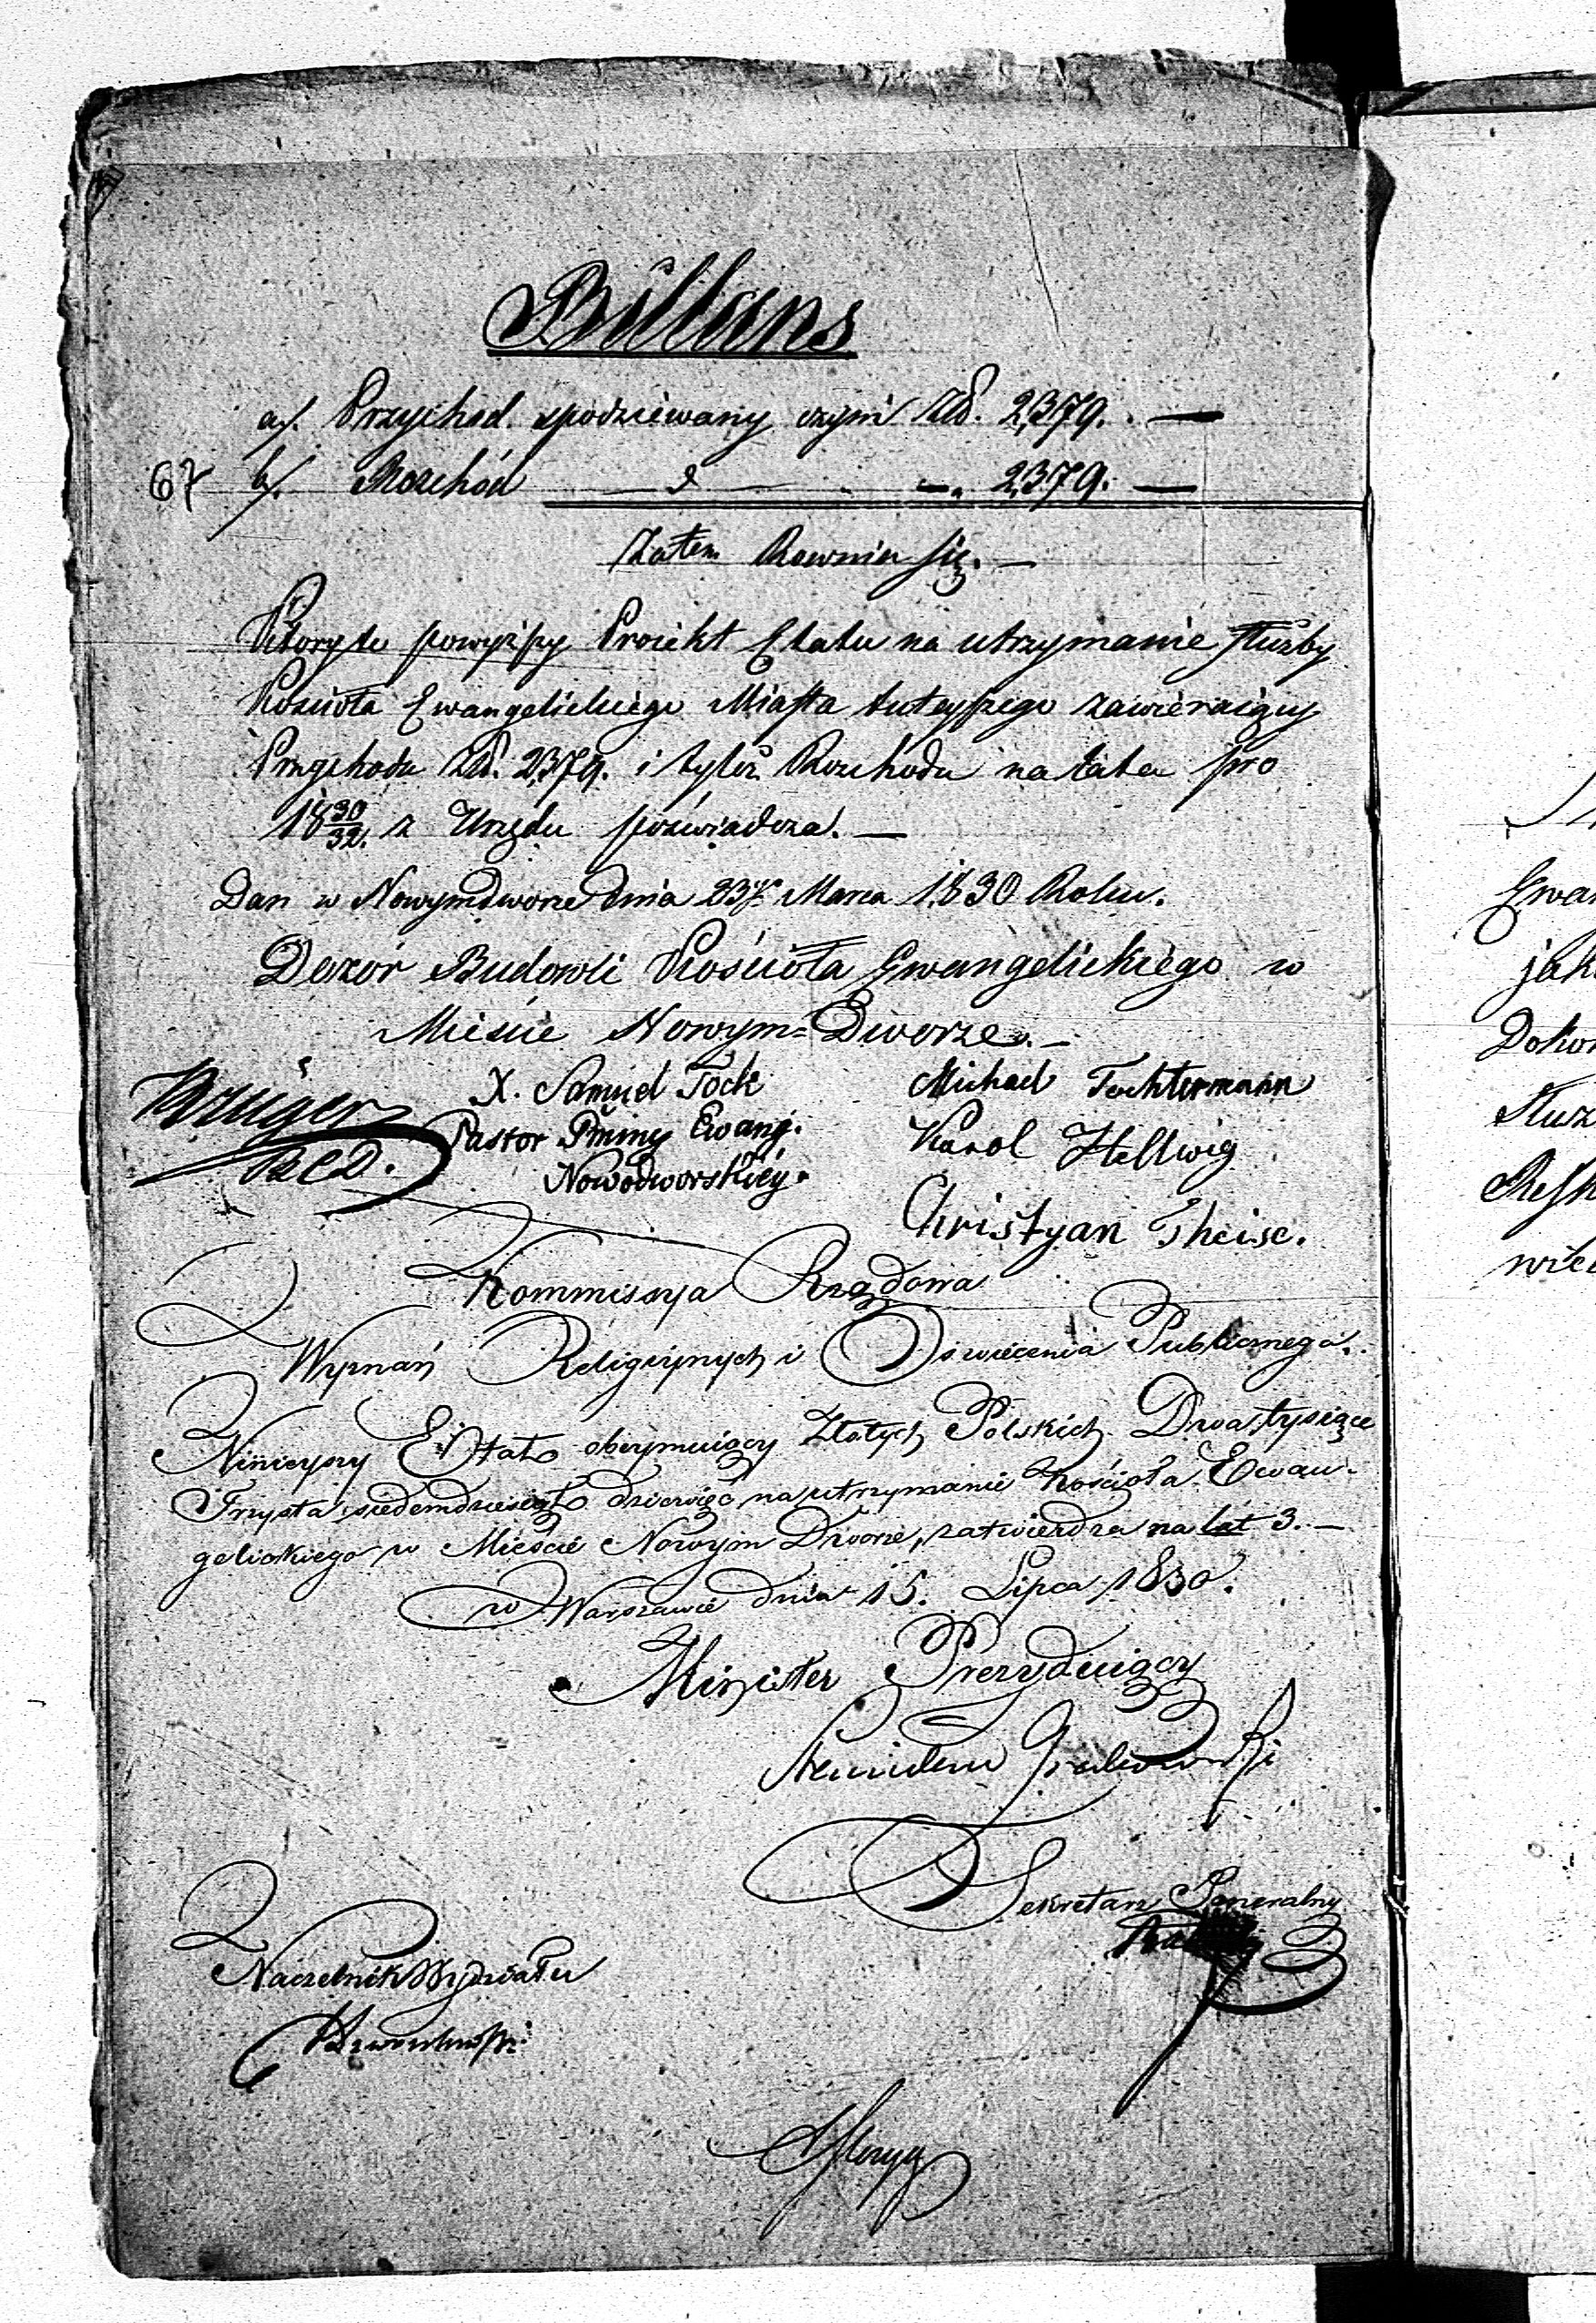 Billans
a/. Przychod spodziewany czyni Złł. 2,379. —
67 b/. Rozchód — d — —„ 2,379. —
Zatem Rowna się. —
Któryto powyższy Proiekt Etatu na utrzymanie służby
Kościoła Ewangelickiego Miasta tuteyszego zawieraiący
Przychodu Złł. 2,379. i tyleż Rozchodu na lata pro
18 30/32. z Urzędu poświadcza. —
Dan w Nowymdworze dnia 23. Marca 1830 Roku.
Dozór Budowli Kościoła Ewangelickiego w
Mieście Nowym=Dworze. —
Krüger
X. Samuel Tock
Pastor Gminy Ewang.
Nowodworskiéy.
Michael Tochtermann
Karol Hellwig
Christyan Theise.
Kommissya Rządowa
Wyznań Religiynych i Oświecenia Publicznego.
Ninieyszy Etat obeymuiący Złotych Polskich Dwa tysiące
Trzysta siedemdziesiąt dziewięć na utrzymanie Kościoła Ewan-
gelickiego w Mieście Nowym Dworze, zatwierdza na lat 3. —
w Warszawie dnia 15. Lipca 1830.
Minister Prezyduiący
Grabowski
Sekretarz Generalny
Naczelnik Wydziału